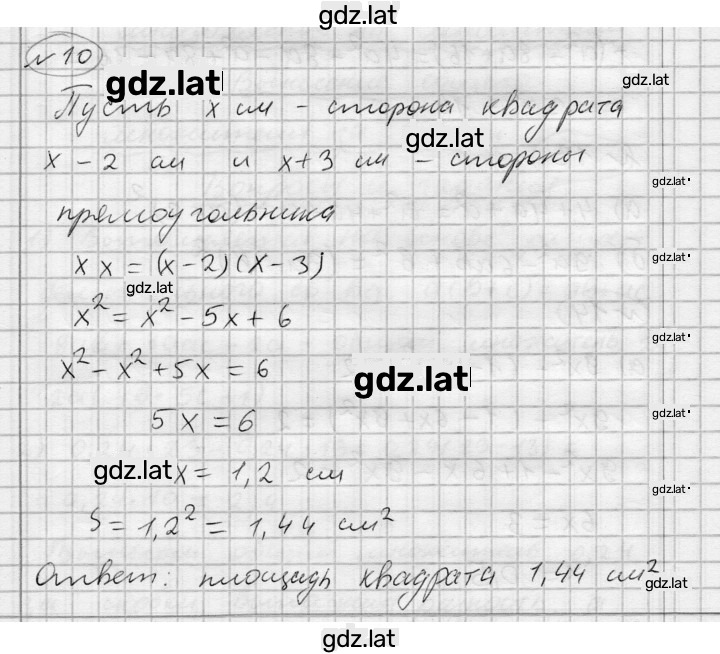 gdz.lat
№10
gdz.lat
gdz.lat
Пусть x см - сторона квадрата
gdz.lat
x - 2 см и x+3 см - стороны
gdz.lat
прямоугольника
x x = (x-2)(x-3)
gdz.lat
gdz.lat
x² = x² - 5x + 6
gdz.lat
x² - x² + 5x = 6
gdz.lat
5x = 6
gdz.lat
gdz.lat x = 1,2 см
gdz.lat
S = 1,2² = 1,44 см²
Ответ: площадь квадрата 1,44 см²
gdz.lat
gdz.lat